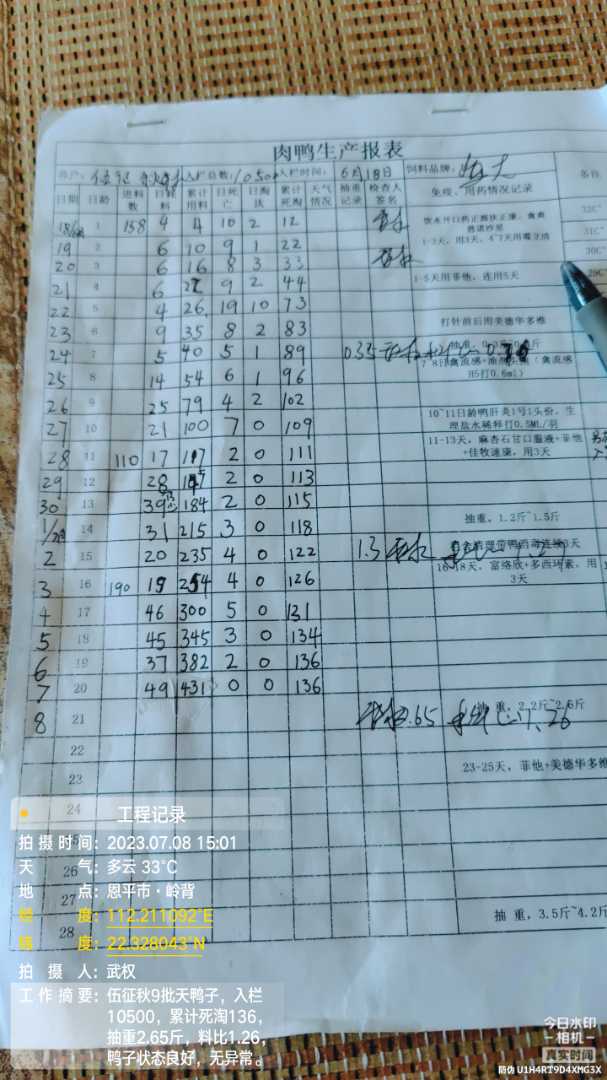 肉鸭生产报表
入栏总数: 10500 入栏时间: 6月18日 饲料品牌:
日期 日龄 进料数 日耗料 累计用料 日死亡 日淘汰 累计死淘 天气情况 抽重记录 检查人签名 免疫、用药情况记录 备注
1 158 4 4 10 2 12
19 2 6 10 9 1 22
20 3 6 16 8 3 33
1-5天用菲他，连用5天
21 4 6 9 2 44
22 5 4 26 19 10 73
23 6 9 35 8 2 83 打针前后用美德华多维
24 7 5 40 5 1 89
25 8 14 54 6 1 96
26 9 25 79 4 2 102
27 10 21 100 7 0 109
10~11日龄鸭肝炎1号1头份，生理盐水稀释打0.5ML/羽
28 11 110 17 117 2 0 111
11-13天，麻杏石甘口服液+菲他+佳牧速康，用3天
29 12 28 2 0 113
30 13 184 2 0 115
14 31 215 3 0 118 抽重，1.2斤~1.5斤
2 15 20 235 4 0 122 1.3
3 16 190 19 254 4 0 126
16-18天，富络欣+多西环素，用3天
4 17 46 300 5 0 131
5 18 45 345 3 0 134
6 19 37 382 2 0 136
7 20 49 431 0 0 136
8 21 重，2.2斤~2.6斤
22
23 23-25天，菲他+美德华多维
24
26
27
28 抽重，3.5斤~4.2斤
工程记录
拍摄时间：2023.07.08 15:01
天气：多云 33°C
地点：恩平市·岭背
经度：112.211092°E
纬度：22.328043°N
拍摄人：武权
工作摘要：伍征秋9批天鸭子，入栏
10500，累计死淘136，
抽重2.65斤，料比1.26，
鸭子状态良好，无异常。
今日水印
相机
真实时间
防伪 U1H4RT9D4XMG3X